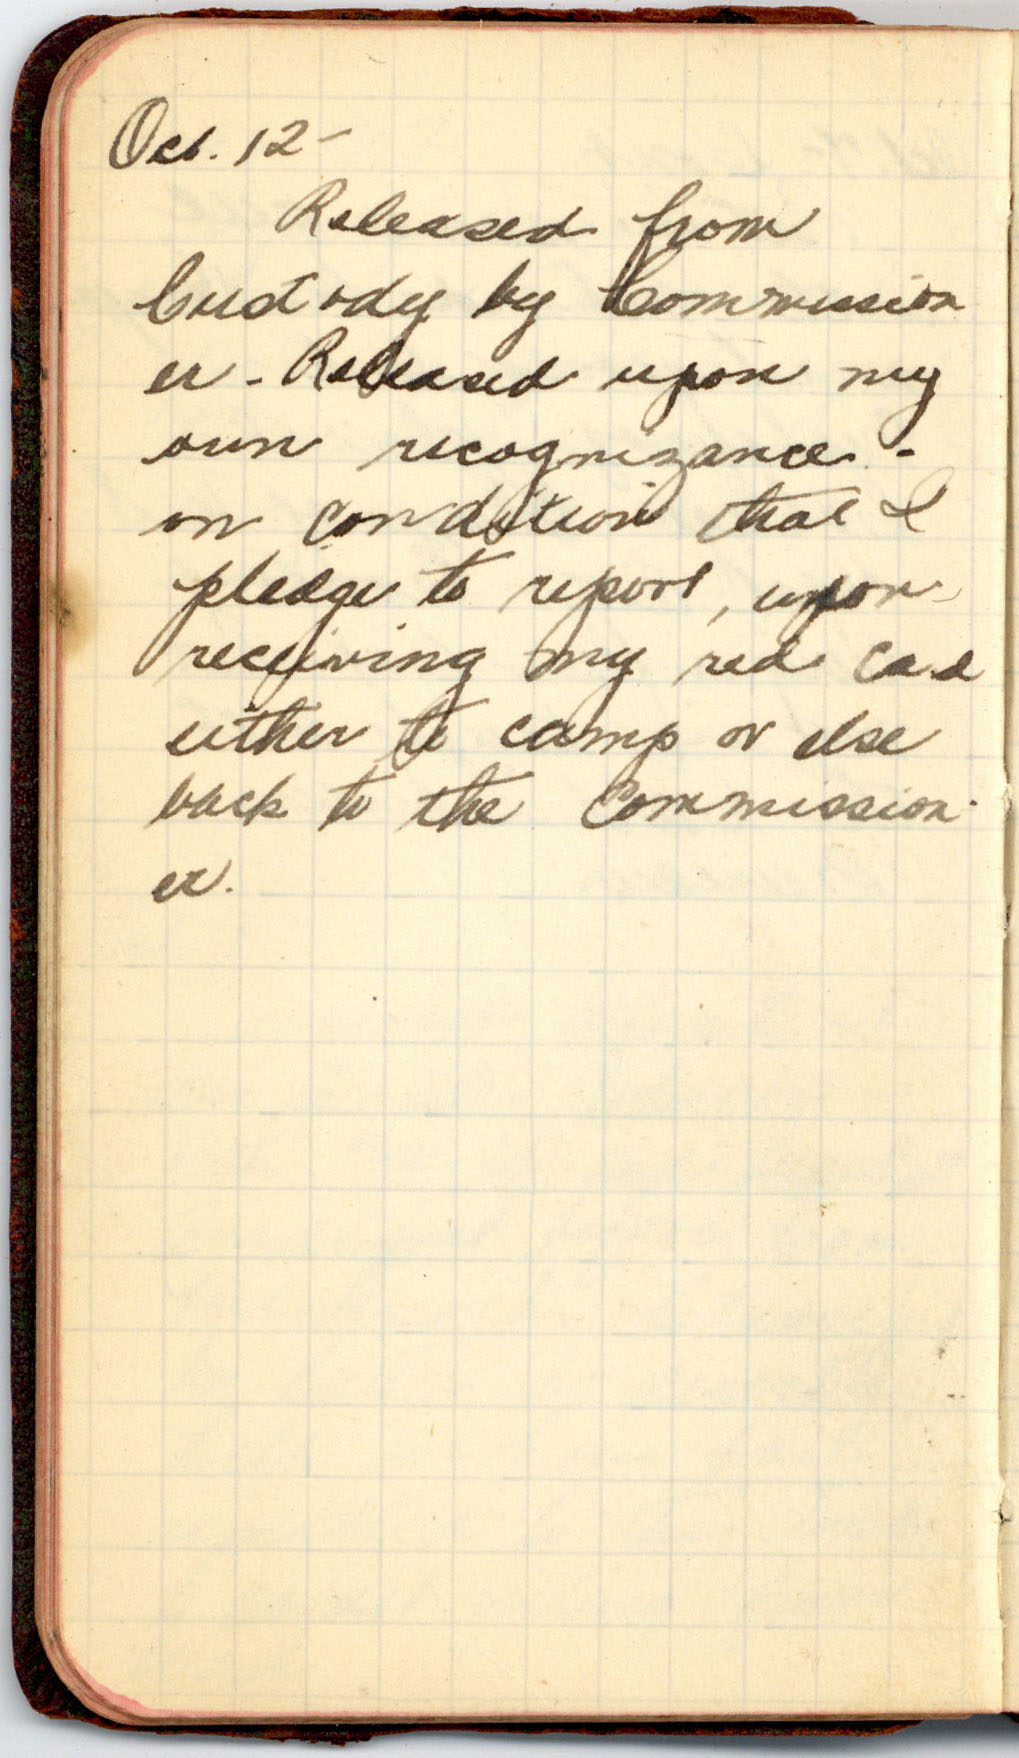 Oct. 12 -
Released from
Custody by Commission
er - Released upon my
own recognizance -
on condition that I
pledge to report, upon
receiving my red card
either to camp or else
back to the Commission-
er.